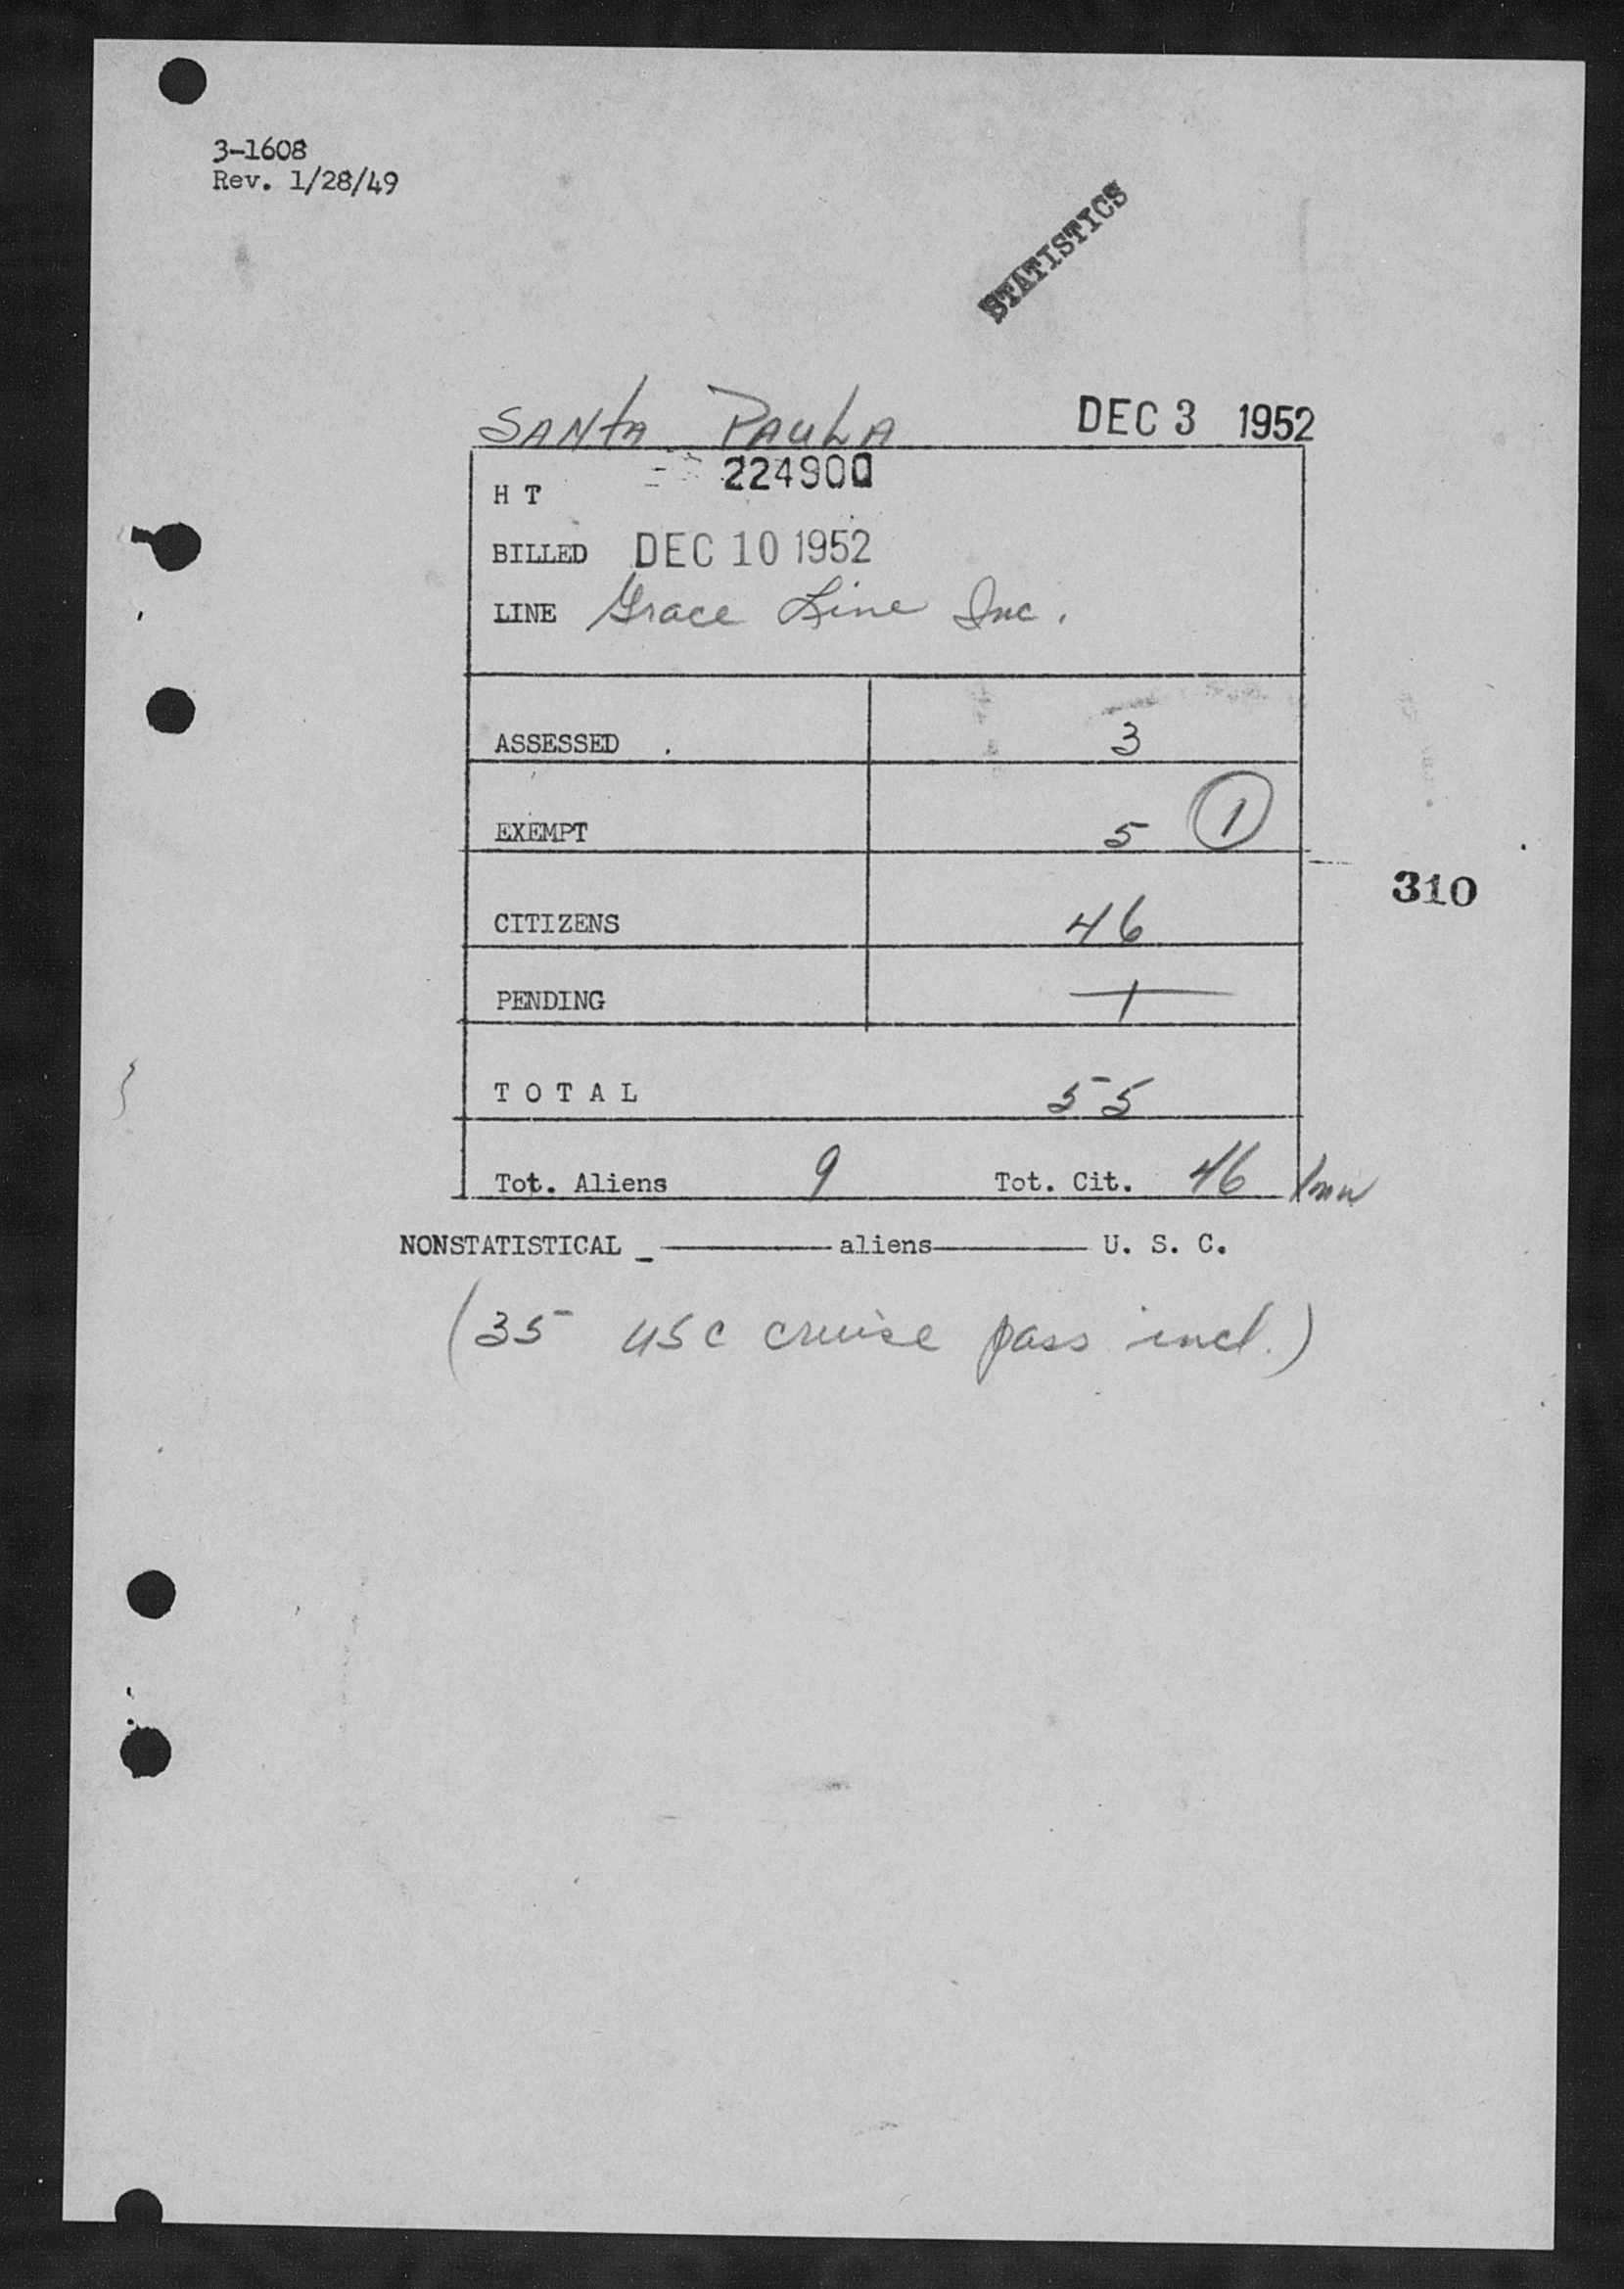 3-1608
Rev. 1/28/49
STATISTICS
SANTA PAULA DEC 3 1952
H T 224900
BILLED DEC 10 1952
LINE Grace Line Inc.
ASSESSED 3
EXEMPT 5 1
310
CITIZENS 46
PENDING 1
T O T A L 55
Tot. Aliens 9 Tot. Cit. 46
NONSTATISTICAL _ ———— aliens ———— U. S. C.
(35 USC cruise pass incl.)